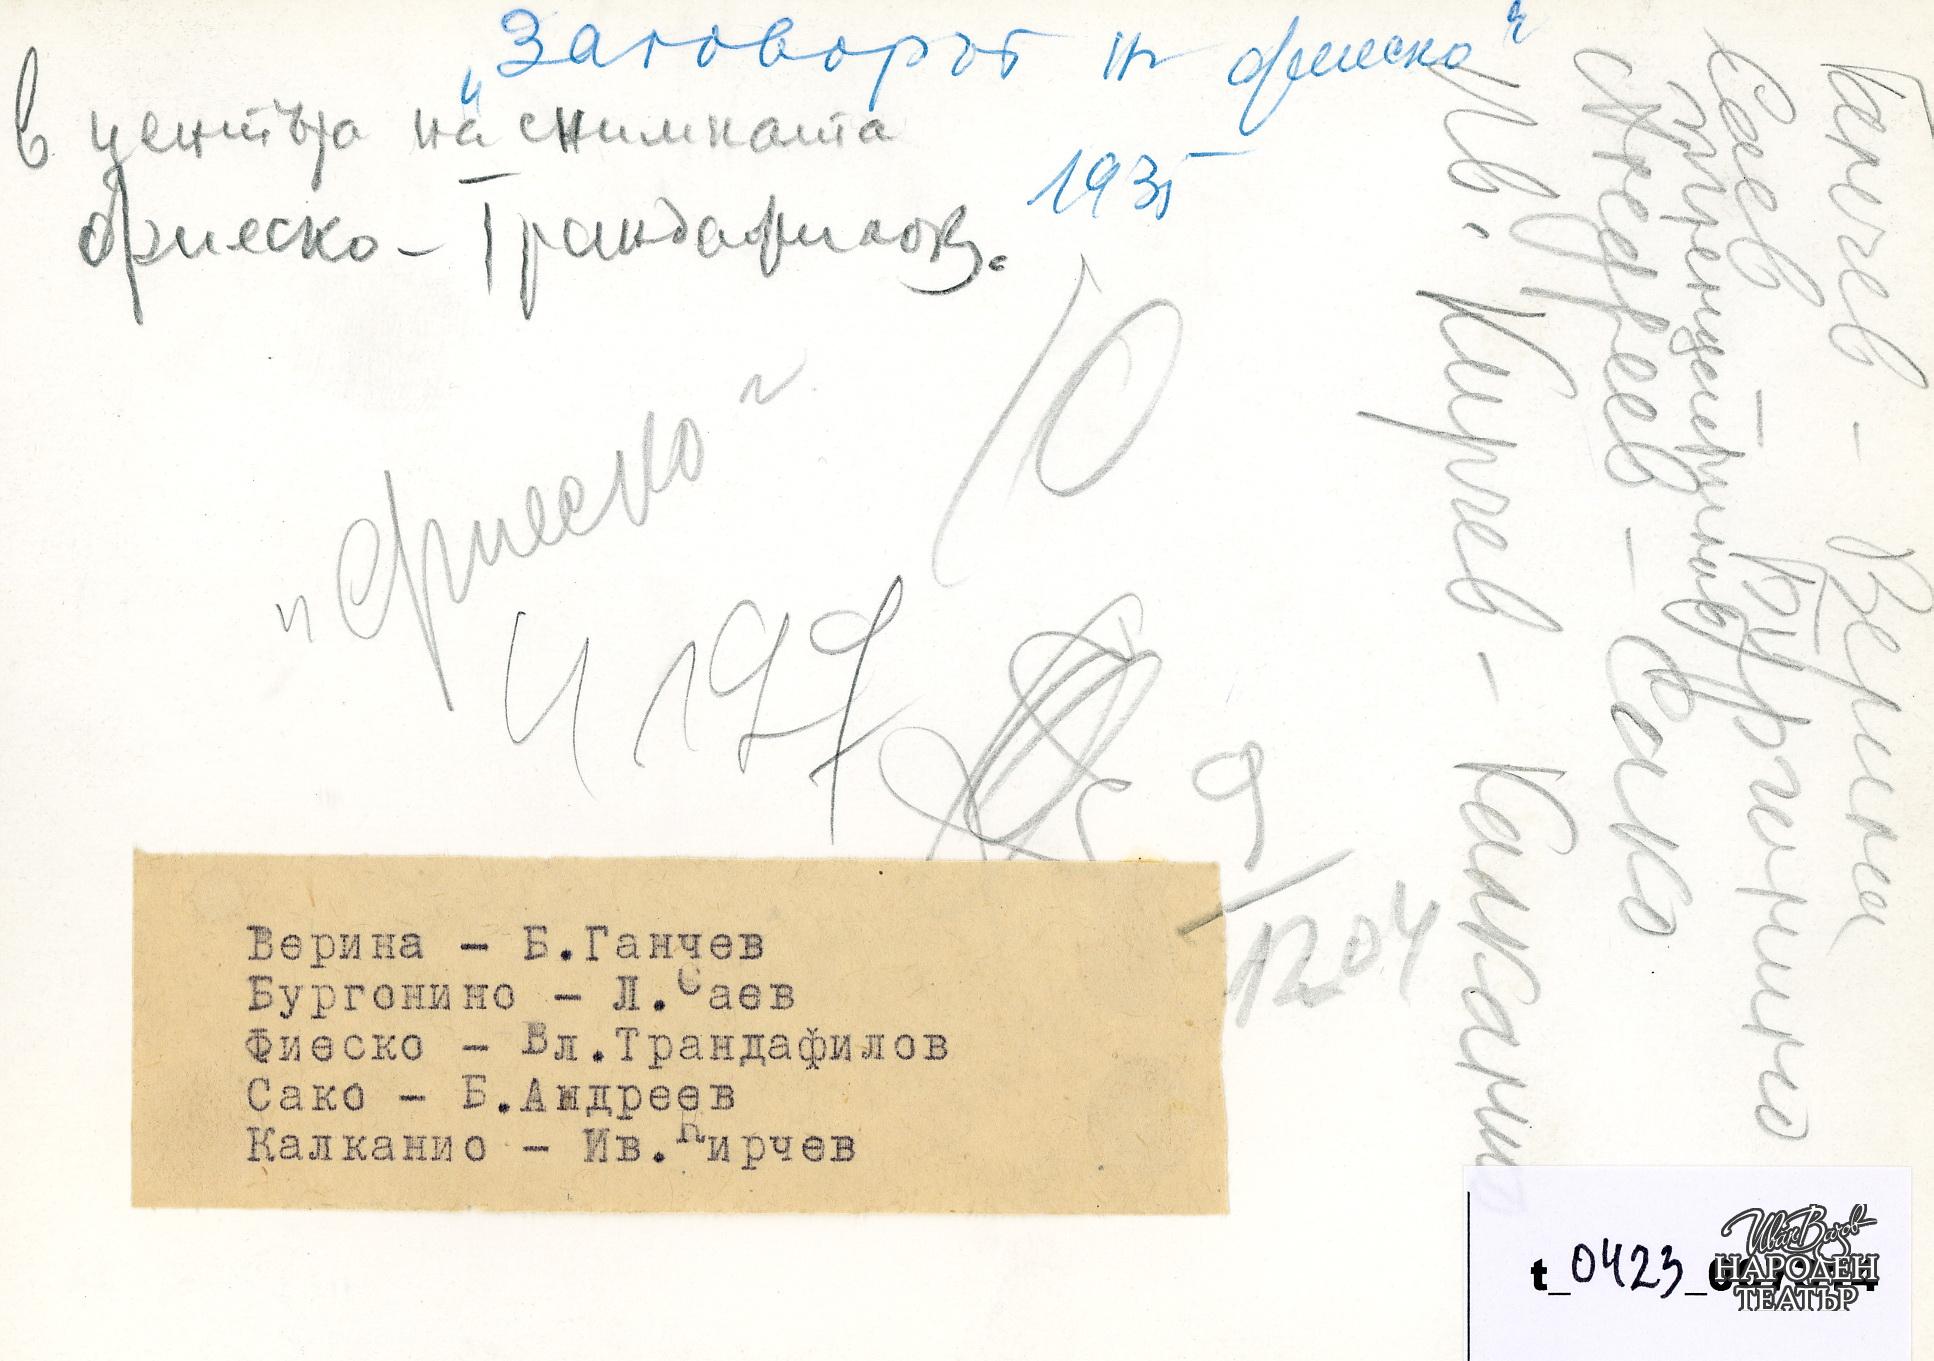 „Заговорът на Фиеско“
1935
в центъра на снимката
Фиеско – Трандафилов.
„Фиеско“
10
4197
9
1204
Ганчев – Верина
Саев – Бургонино
Андреев – Сако
Ив. Кирчев – Калканио
Верина – Б.Ганчев
Бургонино – Л.Саев
Фиеско – Вл.Трандафилов
Сако – Б.Андреев
Калканио – Ив.Кирчев
t_0423_
Иван Вазов
НАРОДЕН
ТЕАТЪР